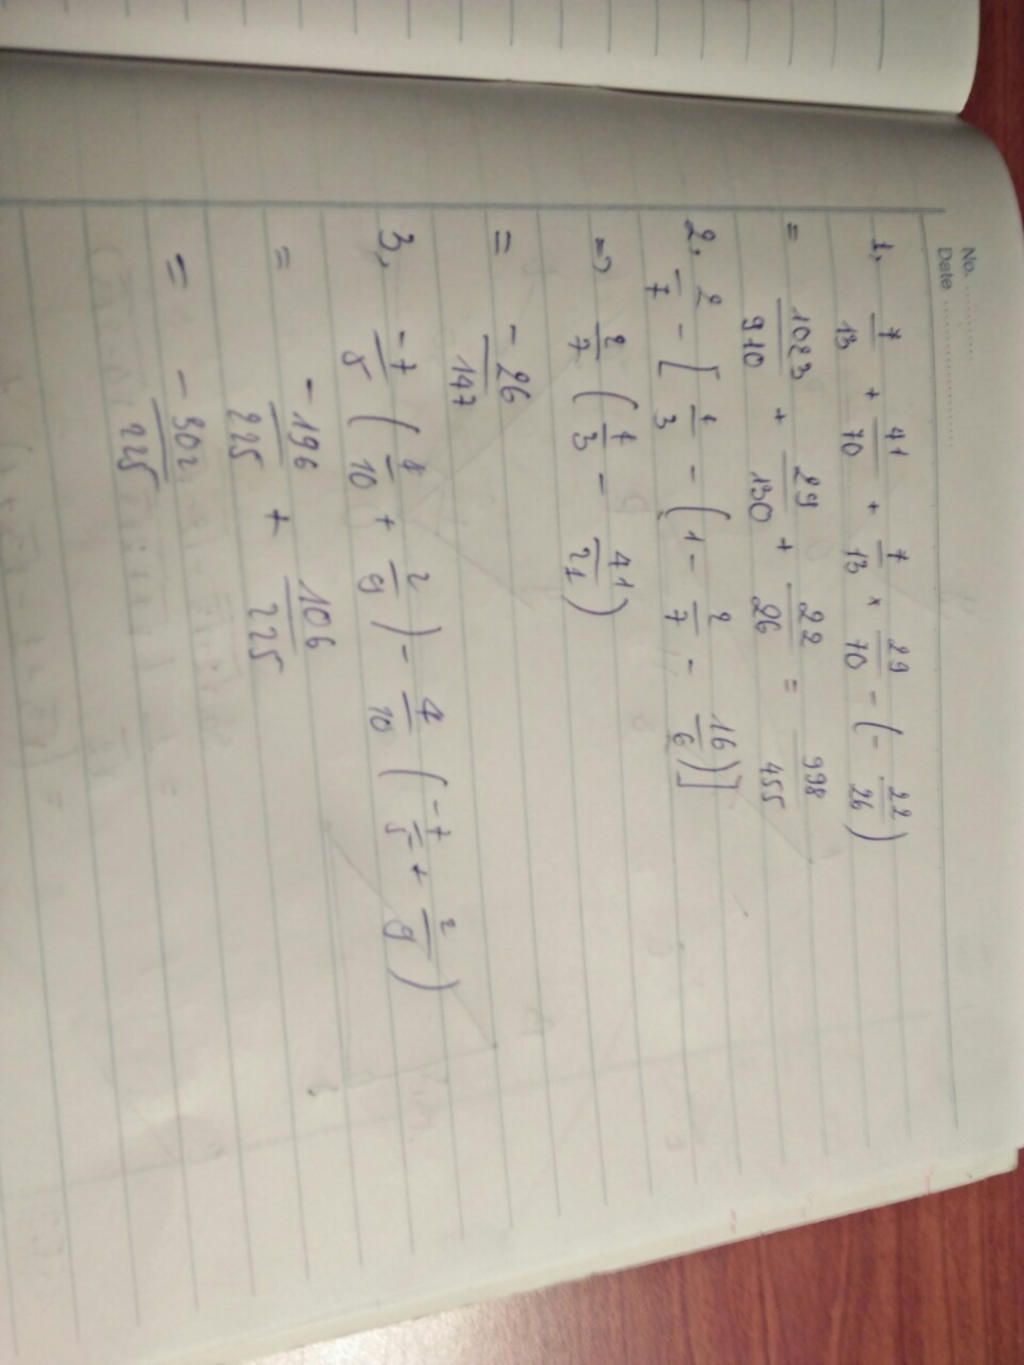 No. ............
Date ..................
1, 7/13 + 41/70 + 7/13 × 29/70 - (- 22/26)
= 1023/910 + 29/130 + 22/26 = 998/455
2, 2/7 - [ 1/3 - (1 - 2/7 - 16/6)]
=> 2/7 (1/3 - 41/21)
= - 26/147
3, -7/5 (8/10 + 2/9) - 4/10 (-7/5 + 2/9)
= - 196/225 + 106/225
= - 302/225